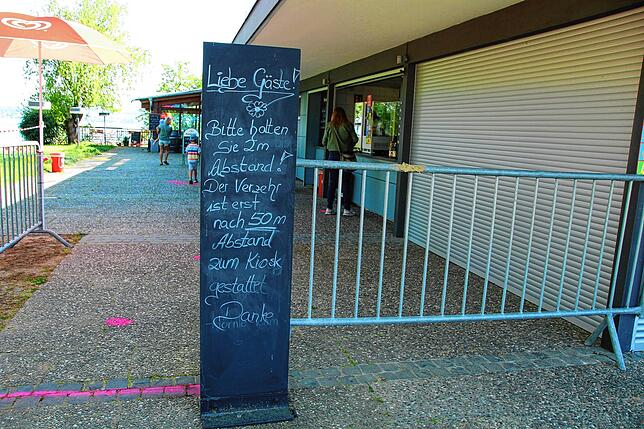 Liebe Gäste!
Bitte halten
Sie 2m
Abstand!
Der Verzehr
ist erst
nach 50m
Abstand
zum Kiosk
gestattet
Danke